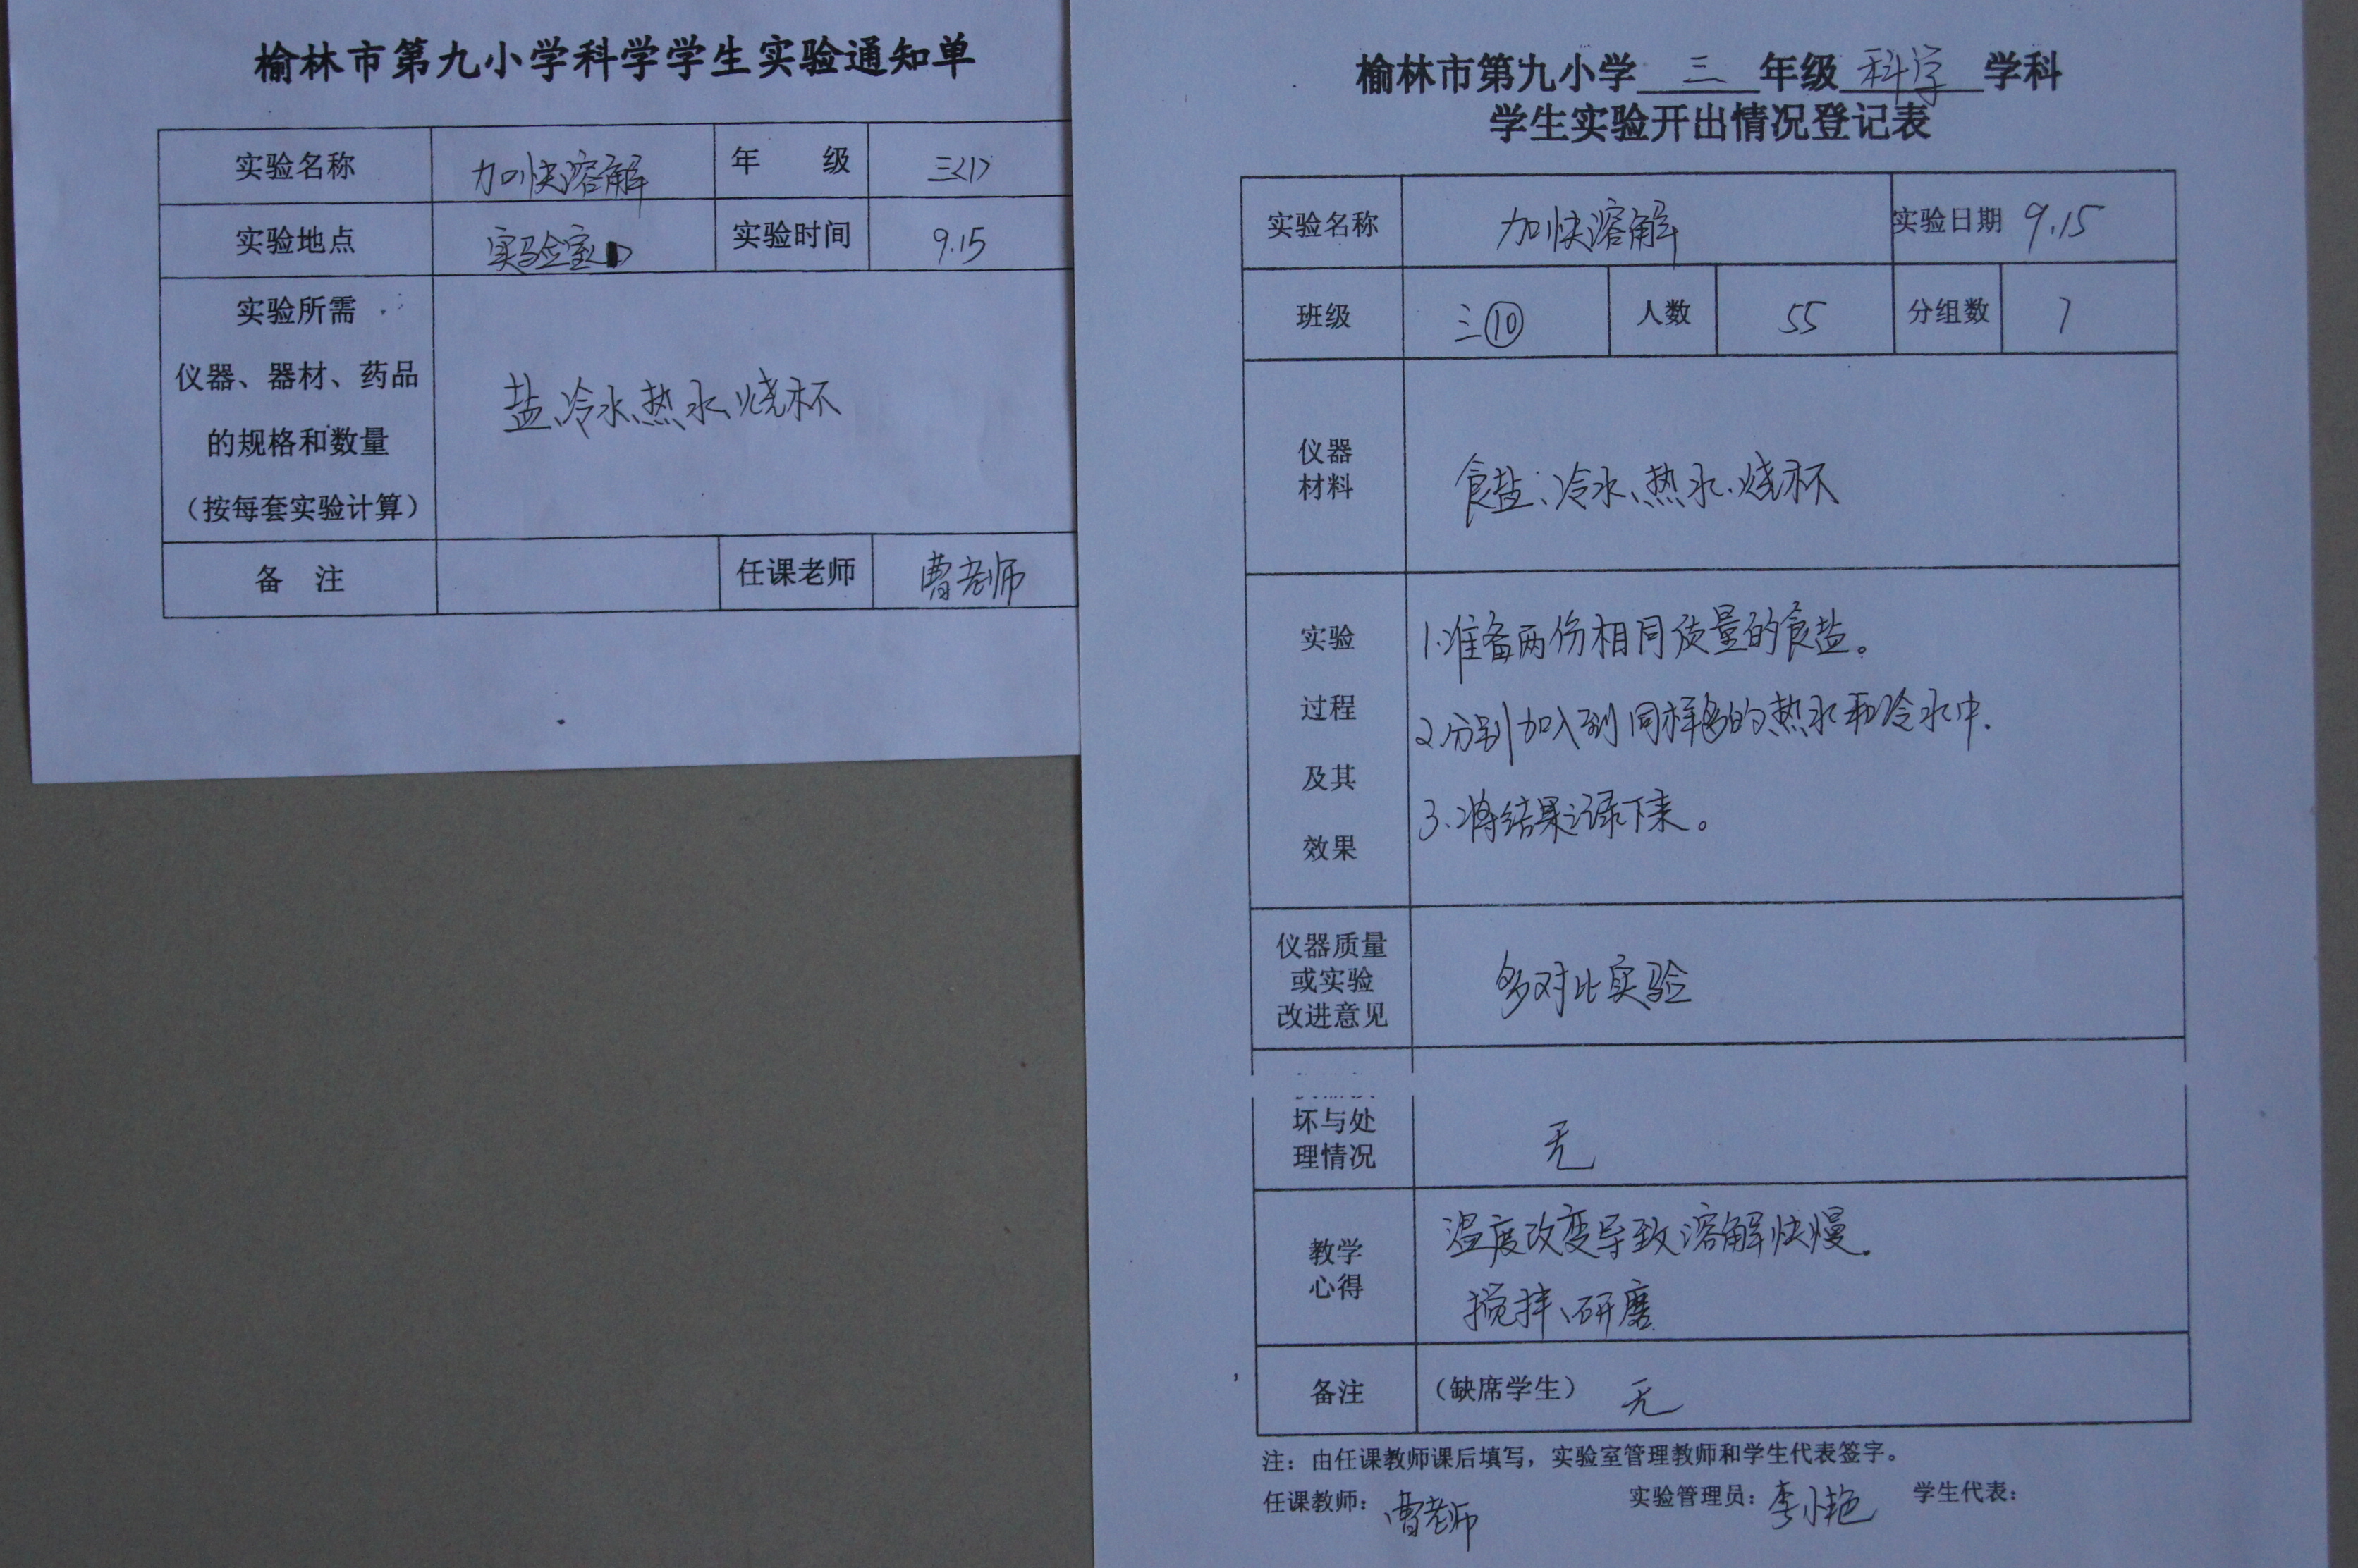 榆林市第九小学科学学生实验通知单
实验名称 加快溶解 年 级 三<1>
实验地点 实验室 实验时间 9.15
实验所需
仪器、器材、药品
的规格和数量
（按每套实验计算）
盐、冷水、热水、烧杯
备 注 任课老师 曹老师
榆林市第九小学 三 年级 科学 学科
学生实验开出情况登记表
实验名称 加快溶解 实验日期 9.15
班级 三⑩ 人数 55 分组数 7
仪器
材料
食盐、冷水、热水、烧杯
实验
过程
及其
效果
1.准备两份相同质量的食盐。
2.分别加入到同样多的热水和冷水中.
3.将结果记录下来。
仪器质量
或实验
改进意见
多对比实验
坏与处
理情况
无
教学
心得
温度改变导致溶解快慢。
搅拌、研磨
备注 （缺席学生） 无
注：由任课教师课后填写，实验室管理教师和学生代表签字。
任课教师：曹老师 实验管理员：李小艳 学生代表：